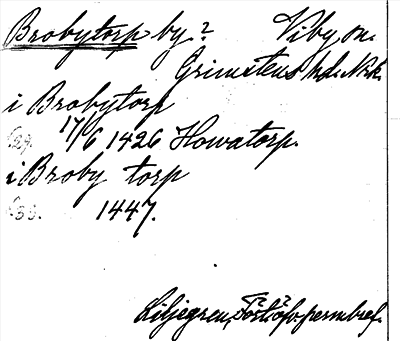 Brobytorp by? Viby sn.
Grimstens hd. Nrk.
i Brobytorp
(29. 17/6 1426 Howatorp.
i Broby torp
(33. 1447.
Liljegren, öfv. permbref.